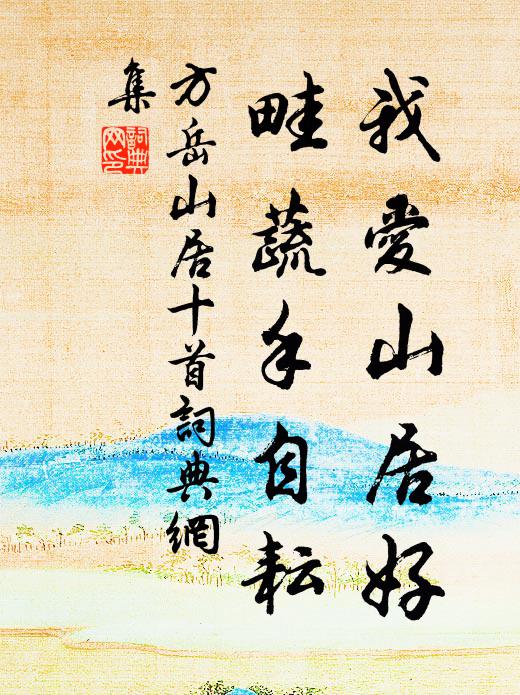 我愛山居好
畦蔬手自耘
方岳山居十首詞典網
集
詞典
网印